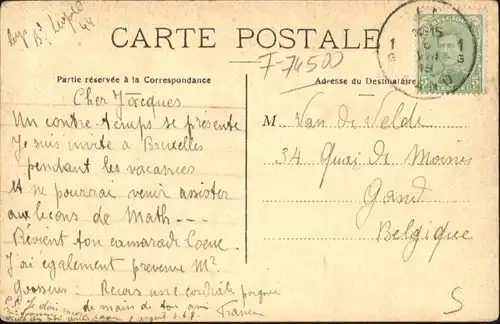 Bd Leopold
44
CARTE POSTALE
F-74500
Partie réservée à la Correspondance
Adresse du Destinataire
BELGIQUE
5
Cher Jacques
Un contre-temps se présente
Je suis invité a Bruxelles
pendant les vacances
et ne pourrai venir assister
aux leçons de Math ---
Révient ton camarade
J'ai également prevenu Mr
Recois une cordiale poignée
de main de ton ami
M Van de Velde
34 Quai de Moines
Gand
Belgique